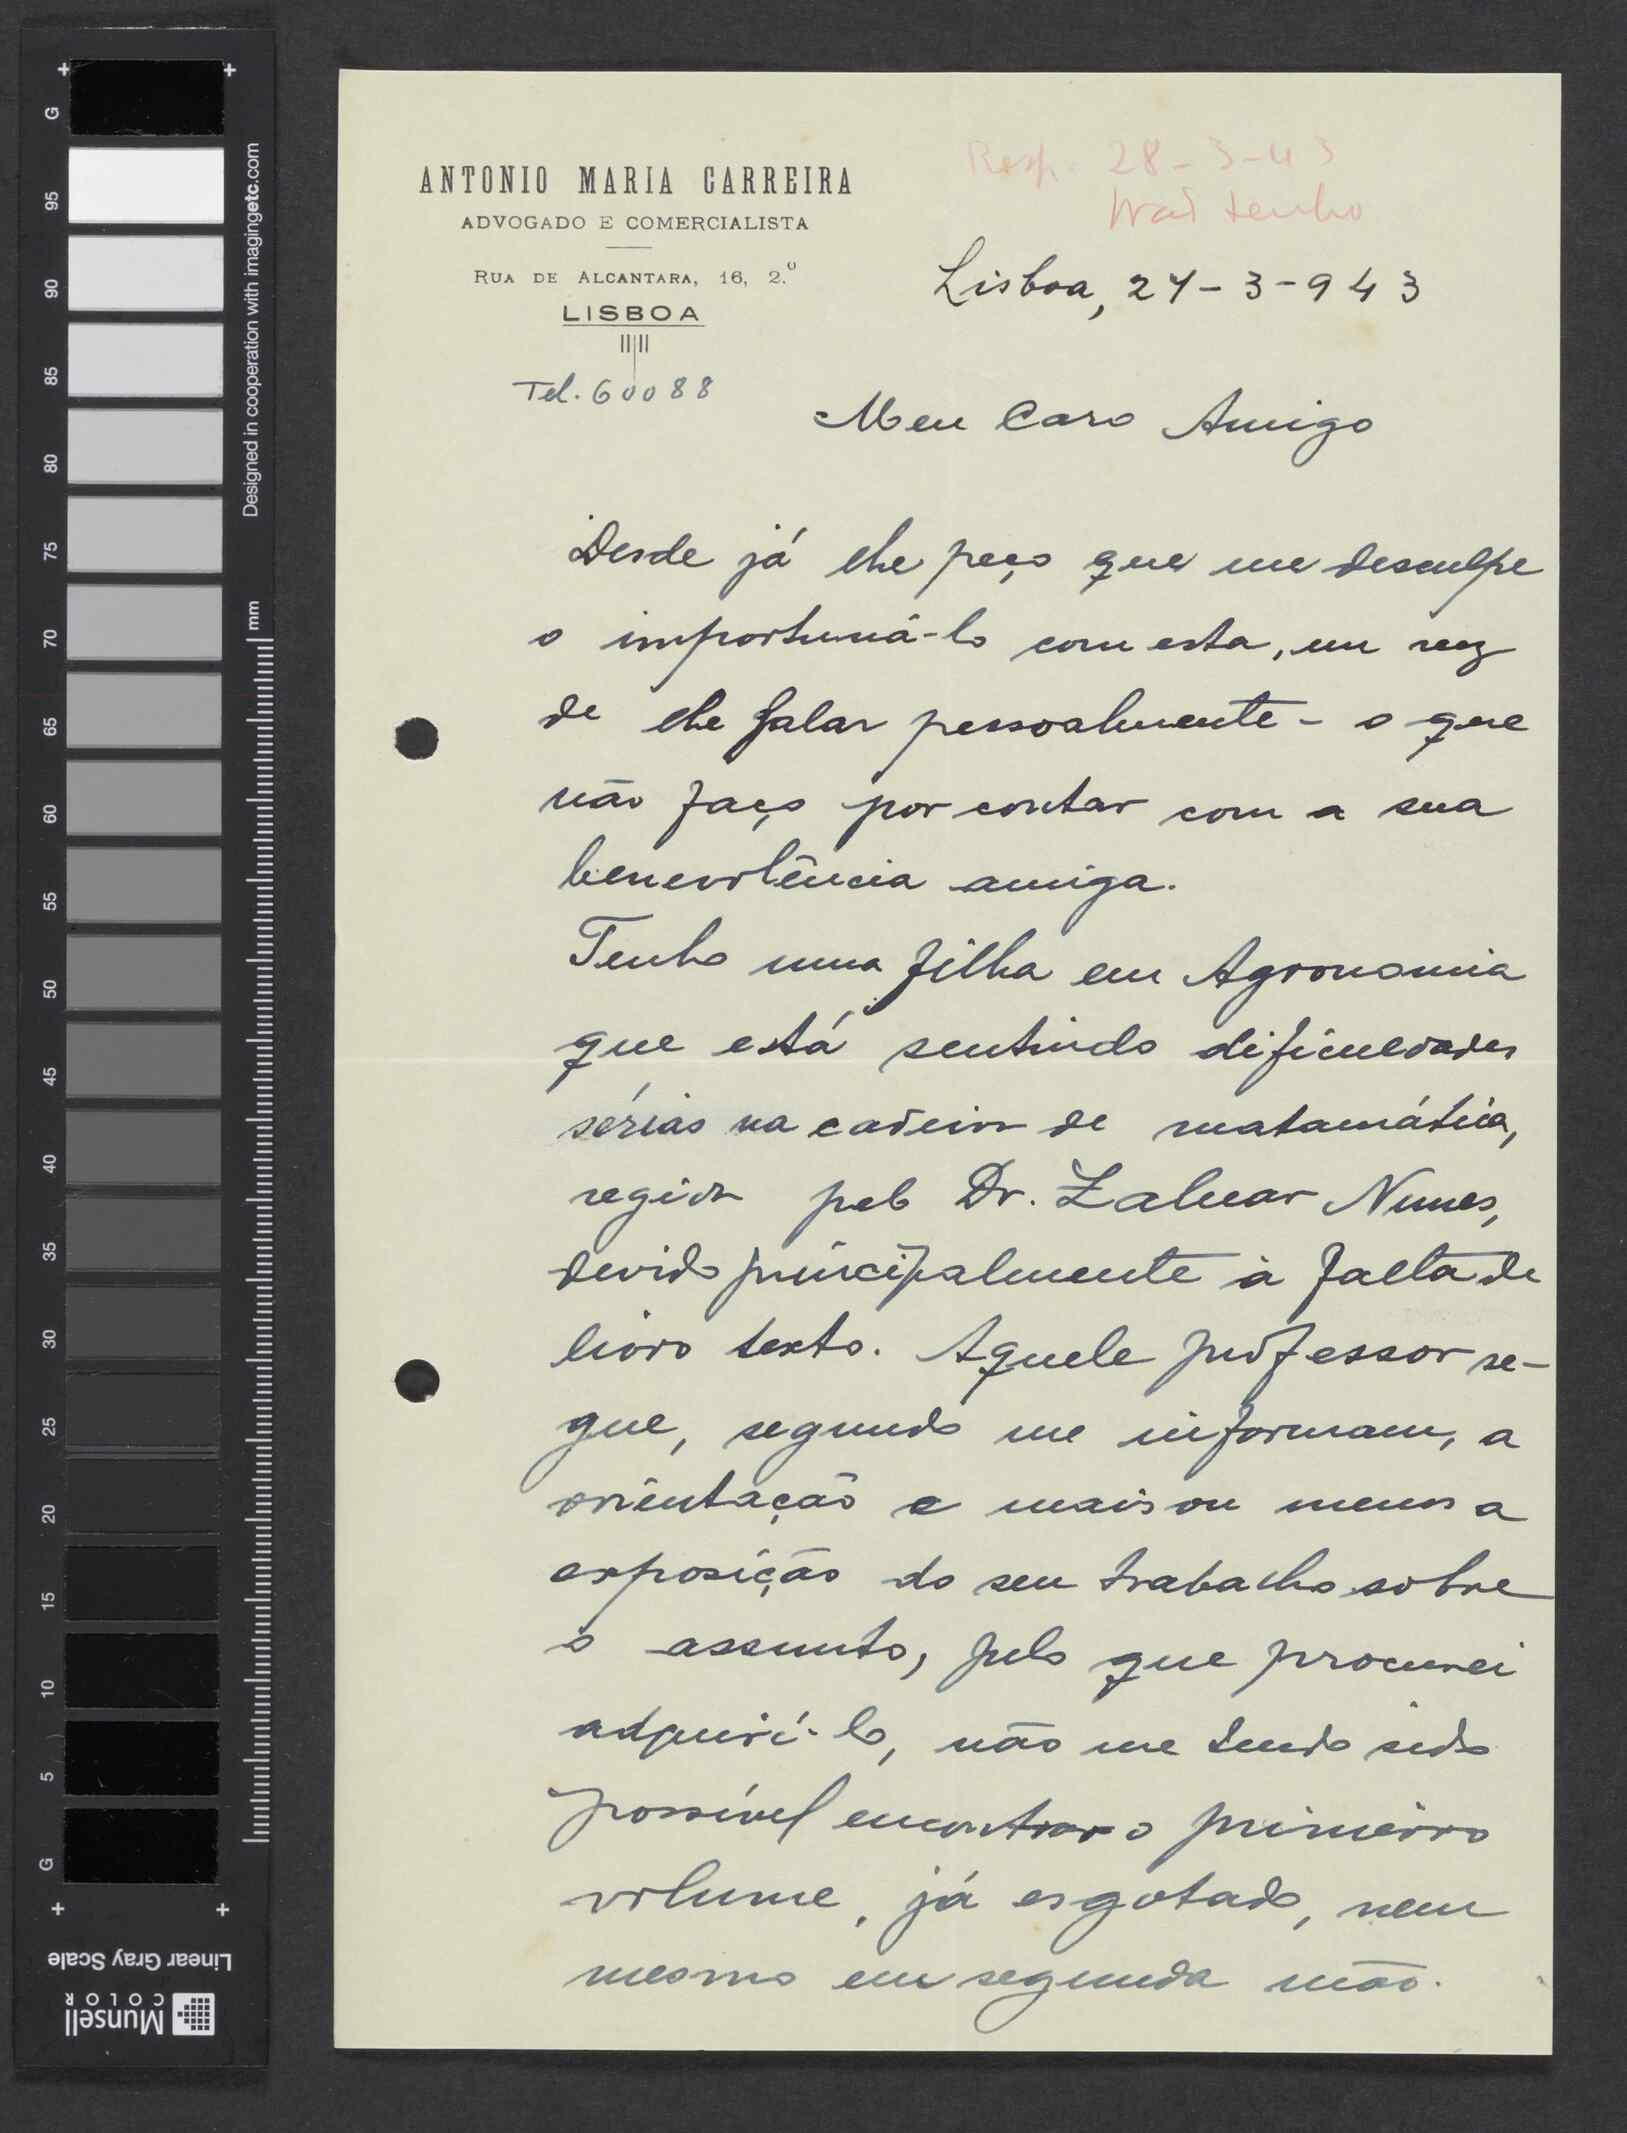 ANTONIO MARIA CARREIRA
ADVOGADO E COMERCIALISTA
RUA DE ALCANTARA, 16, 2.º
LISBOA
Tel. 60088
Resp. 28-3-43
Não tenho
Lisboa, 27-3-943
Meu Caro Amigo
Desde já lhe peço que me desculpe
o importuná-lo com esta, em vez
de lhe falar pessoalmente - o que
não faço por contar com a sua
benevolência amiga.
Tenho uma filha em Agronomia
que está sentindo dificuldades
sérias na cadeira de matamática,
regida pelo Dr. Zaluar Nunes,
devido principalmente à falta de
livro texto. Aquele professor se-
gue, segundo me informam, a
orientação e mais ou menos a
exposição do seu trabalho sobre
o assunto, pelo que procurei
adquiri-lo, não me tendo sido
possível encontrar o primeiro
volume, já esgotado, nem
mesmo em segunda mão.
G
95
90
85
80
75
70
65
60
55
50
45
40
35
30
25
20
15
10
5
G
Designed in cooperation with imagingetc.com
mm
Linear Gray Scale
Munsell
COLOR